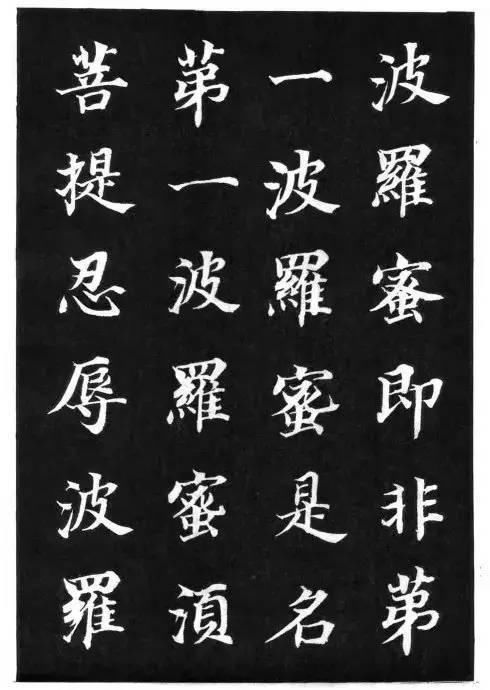 波羅蜜即非苐
一波羅蜜是名
苐一波羅蜜湏
菩提忍辱波羅